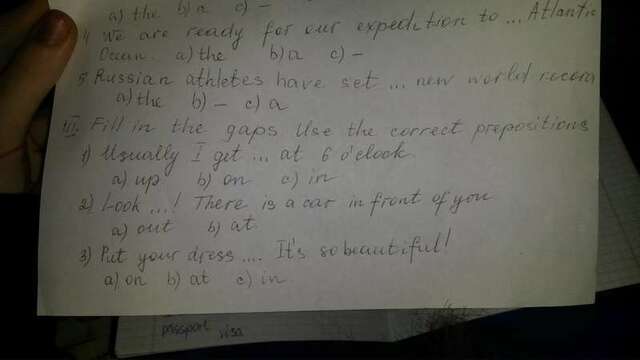 a) the b) a c) –
4. We are ready for our expedition to ... Atlantic
Ocean. a) the b) a c) –
5. Russian athletes have set ... new world record
a) the b) – c) a
III. Fill in the gaps Use the correct prepositions
1) Usually I get ... at 6 o'clock
a) up b) on c) in
2) Look ...! There is a car in front of you
a) out b) at
3) Put your dress .... It's so beautiful!
a) on b) at c) in
passport visa